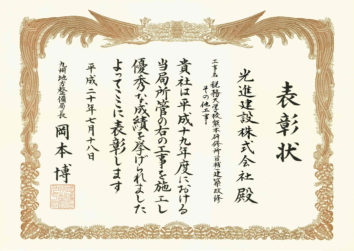 表彰状
光進建設株式会社 殿
工事名 税務大学校熊本研修所耐震・建築改修
その他工事
貴社は平成十九年度における
当局所管の右の工事を施工し
優秀な成績を挙げられました
よってここに表彰します
平成二十年七月十八日
九州地方整備局長 岡本 博